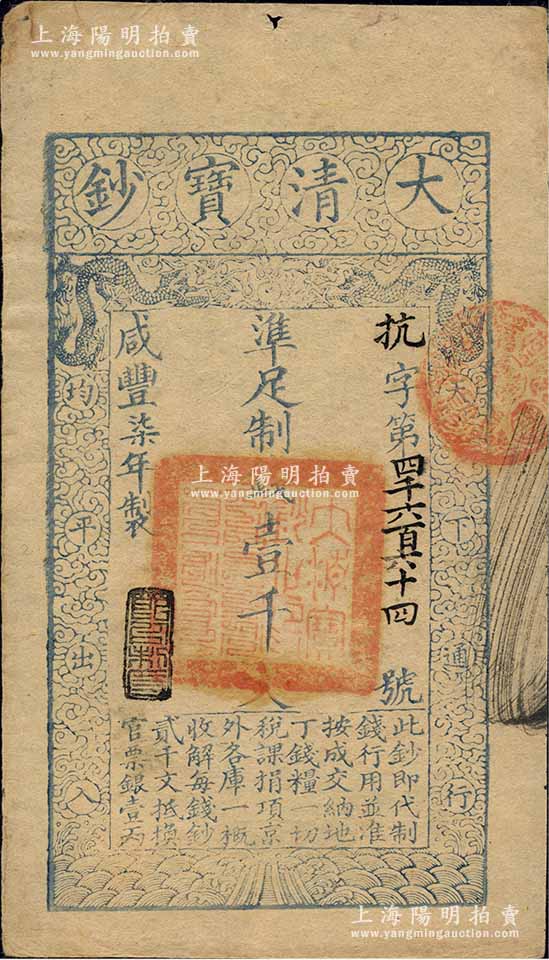 上海陽明拍賣
www.yangmingauction.com
大清寶鈔
天下通行
均平出入
抗字第四千六百六十四號
準足制錢壹千文
咸豐柒年製
上海陽明拍賣
www.yangmingauction.com
此鈔即代制
錢行用並准
按成交納地
丁錢糧一切
稅課捐項京
外各庫一概
收解每錢鈔
貳千文抵換
官票銀壹兩
上海陽明拍賣
www.yangmingauction.com